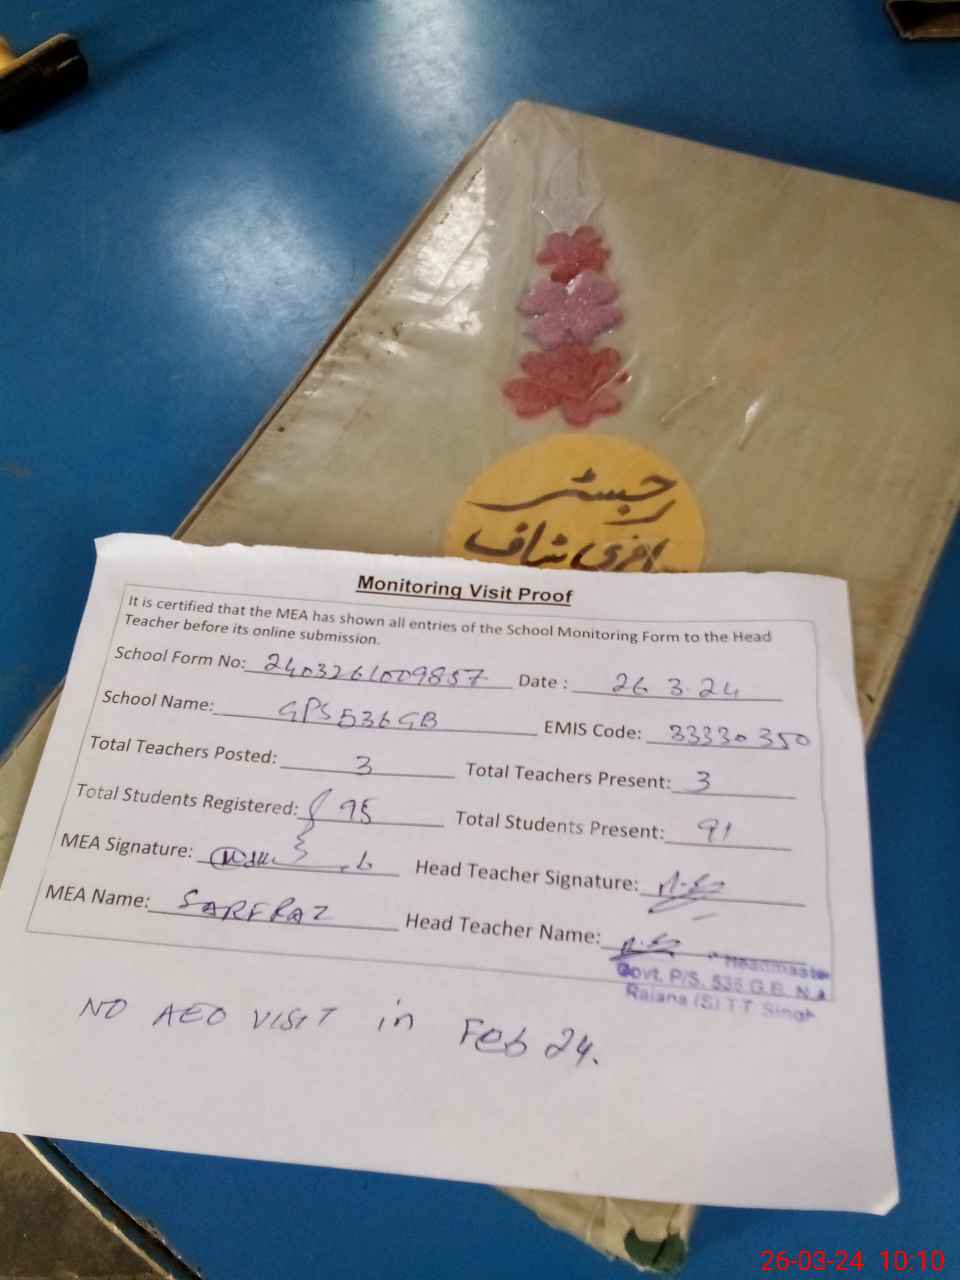 رجسٹر
Monitoring Visit Proof
It is certified that the MEA has shown all entries of the School Monitoring Form to the Head
Teacher before its online submission.
School Form No: 2403261009857 Date : 26 3.24
School Name: GPS 536 GB EMIS Code: 33330350
Total Teachers Posted: 3 Total Teachers Present: 3
Total Students Registered: 95 Total Students Present: 91
MEA Signature: Head Teacher Signature:
MEA Name: SARFRAZ Head Teacher Name:
Headmaster
Govt. P/S. 536 G.B.
(S) T.T Singh
NO AEO VISIT in Feb 24.
26-03-24 10:10